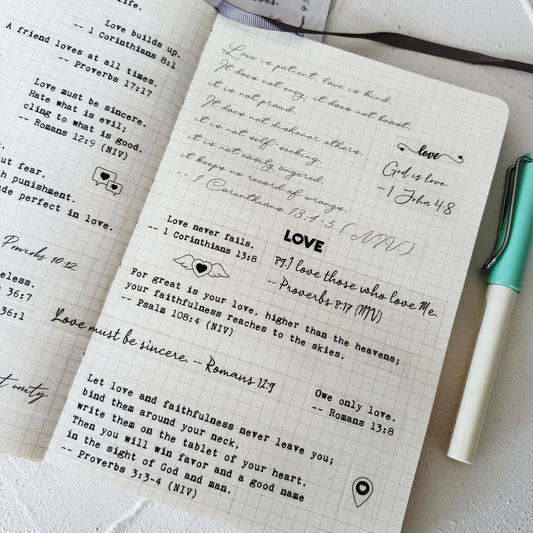 life.
Love builds up.
-- 1 Corinthians 8:1
A friend loves at all times.
-- Proverbs 17:17
Love must be sincere.
Hate what is evil;
cling to what is good.
-- Romans 12:9 (NIV)
out fear.
punishment.
made perfect in love.
Proverbs 10:12
36:7
36:1
unity
Love is patient, love is kind.
It does not envy, it does not boast,
it is not proud.
It does not dishonor others,
it is not self-seeking,
it is not easily angered,
it keeps no record of wrongs.
-- 1 Corinthians 13:4-5 (NIV)
love
God is love.
-- 1 John 4:8
Love never fails.
-- 1 Corinthians 13:8
LOVE
I love those who love Me.
-- Proverbs 8:17 (NIV)
For great is your love, higher than the heavens;
your faithfulness reaches to the skies.
-- Psalm 108:4 (NIV)
Love must be sincere. -- Romans 12:9
Owe only love.
-- Romans 13:8
Let love and faithfulness never leave you;
bind them around your neck,
write them on the tablet of your heart.
Then you will win favor and a good name
in the sight of God and man.
-- Proverbs 3:3-4 (NIV)